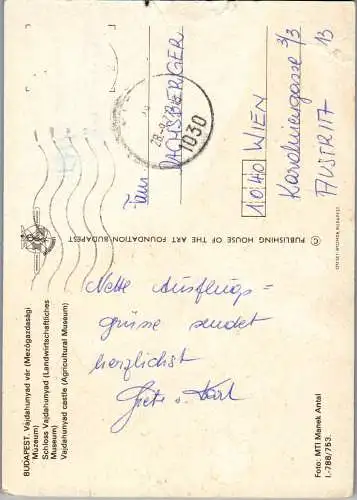 BUDAPEST. Vajdahunyad vár (Mezőgazdasági
Múzeum)
Schloss Vajdahunyad (Landwirtschaftliches
Museum)
Vajdahunyad castle (Agricultural Museum)
Nette Ausflugs-
grüsse sendet
herzlichst
Grete u. Karl
© PUBLISHING HOUSE OF THE ART FOUNDATION BUDAPEST
Foto: MTI Manek Antal
I.-788/753.
1030
Fam.
DACHSBERGER
1040 WIEN
Karolinengasse 3/3
13
AUSTRIA